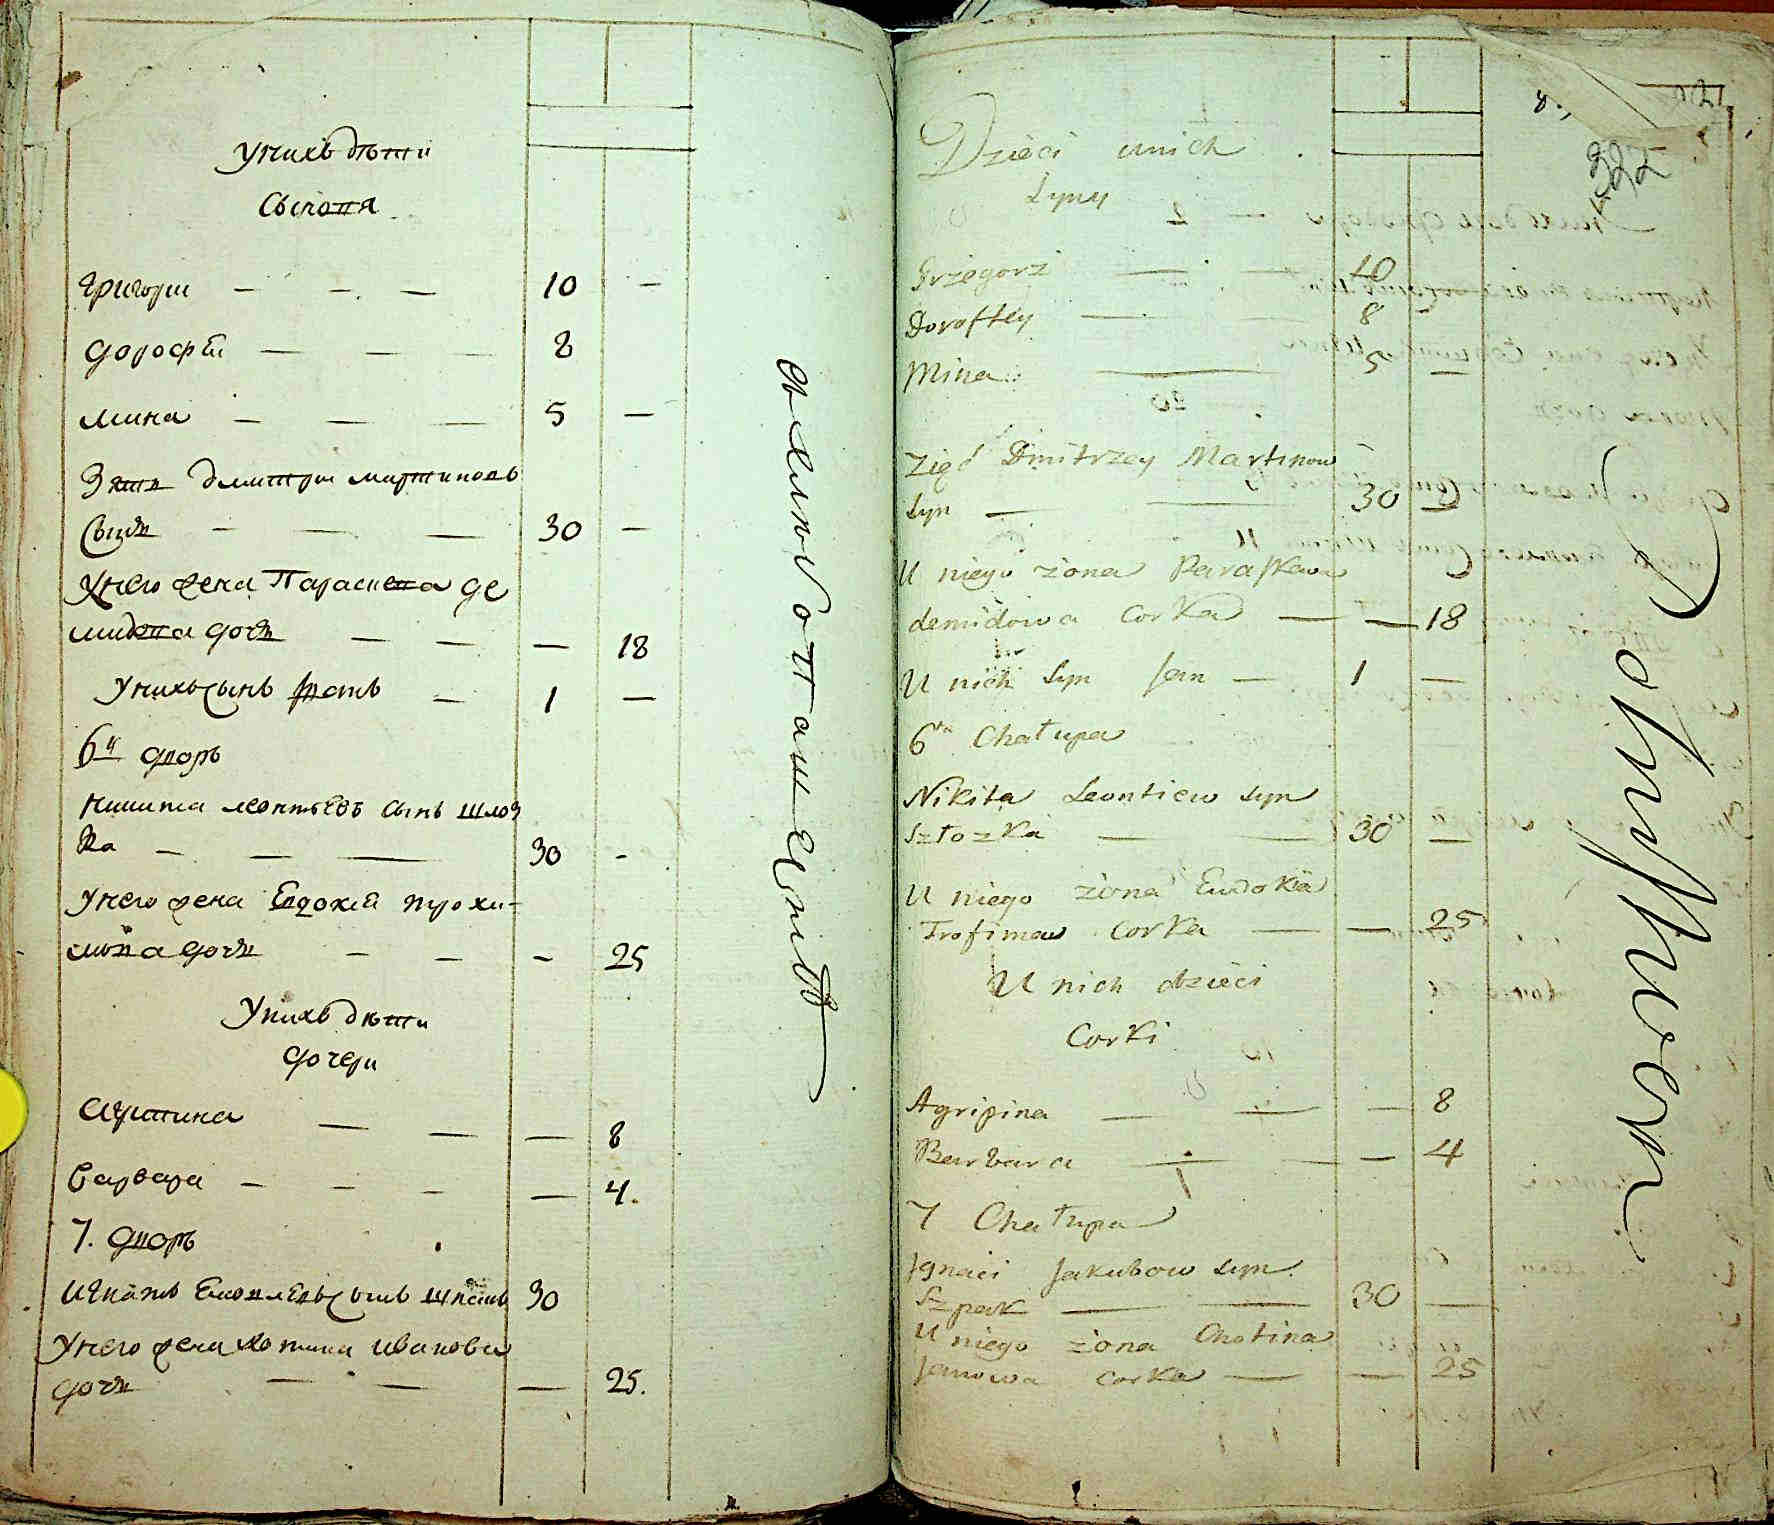 У нихъ дѣти
Сыновя
Григори — — — 10 —
Дорофѣи — — — 8
Мина — — — 5 —
Зять Дмитри Мартиновъ
Сынъ — — — 30 —
У него жена Парасковя де
мидова дочь — — — 18
У нихъ сынъ — 1 —
6й дворъ
Никита Леонтьевъ сынъ шлоз
ка — — — 30 -
У него жена Евдокия Трохи-
мова дочь — — - 25
У нихъ дѣти
дочери
Агрипина — — — 8
Варвара — — — — 4.
7. дворъ
Игнатъ сынъ шпакъ 30
У него жена Хотина Иванова
дочь — — — 25.
8.
322
Dzieci u nich
Syny
Grzegorz — — 10
Doroftey — — 8 -
Mina — 5 —
Zięć Dmitrzey Martinow
Syn — — 30 —
U niego żona Paraskewa
demidowa Corka — — 18
U nich Syn Jan — 1 —
6ta Chałupa
Nikita Leontiew Syn
Szłozka — — 30 —
U niego żona Eudokia
Trofimow Corka — — 25
U nich dzieci
Corki
Agripina — — — 8
Barbara — — — 4
7 Chałupa
Jgnaci Jakubow Syn
Szpak — — 30 —
U niego żona Chotina
Janowa Corka — — 25